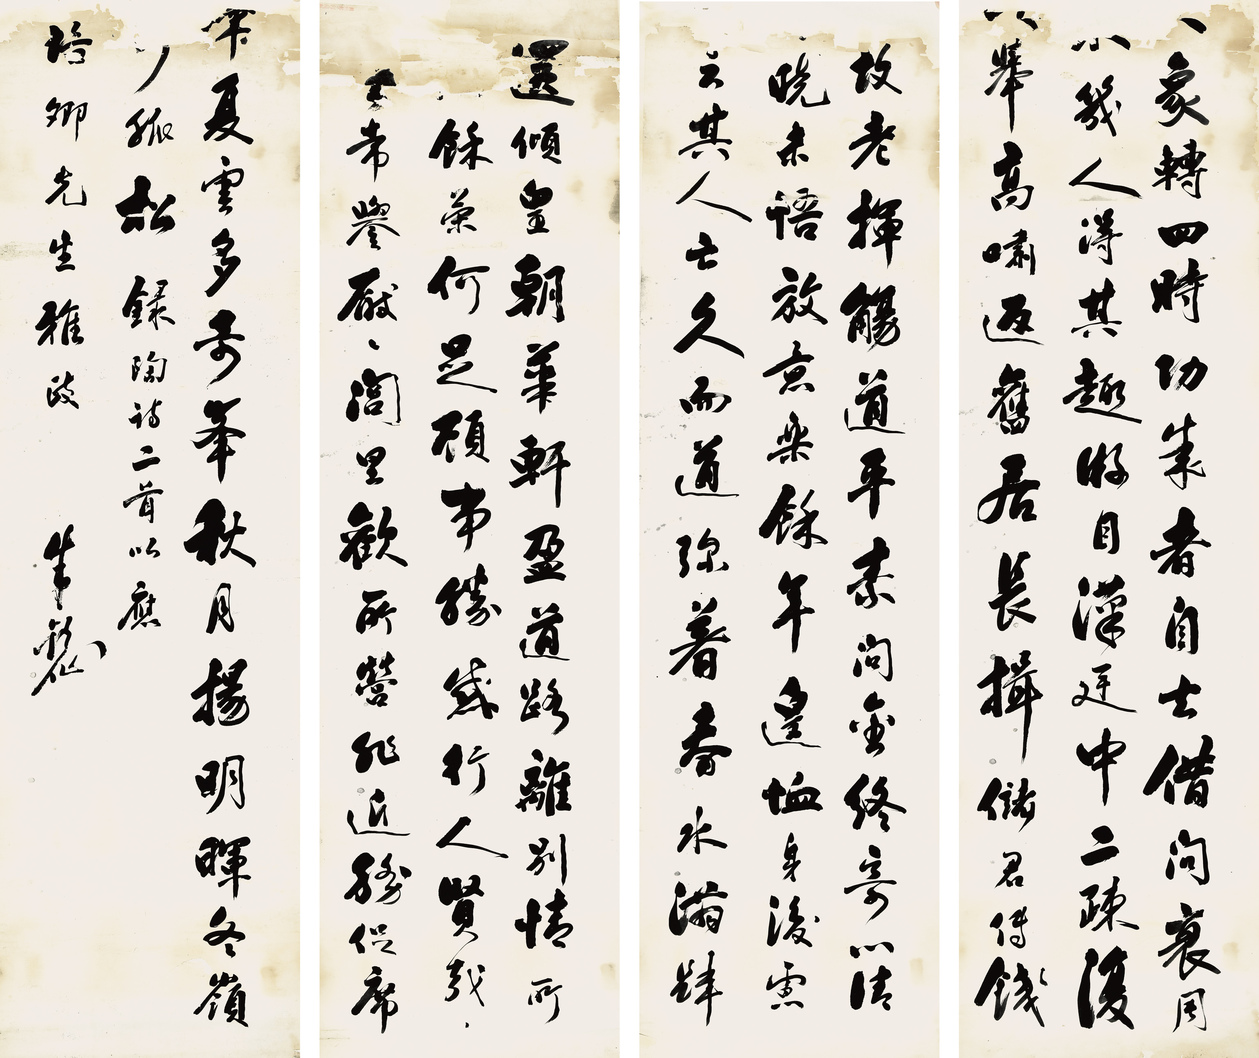 象轉四時功成者自去借問衰周
幾人得其趣游目漢廷中二疏復
舉高嘯返舊居長揖儲君傅餞
故老揮觴道平素問金終寄心清
曉未悟放意樂餘年遑恤身後慮
云其人亡久而道彌著春水滿肆
傾皇朝華軒盈道路離別情所
餘榮何足顧事勝感行人賢哉
常譽厭、閭里歡所營非近務促席
夏雲多奇峯秋月揚明暉冬嶺
孤松 錄陶詩二首以應
培卿先生雅政